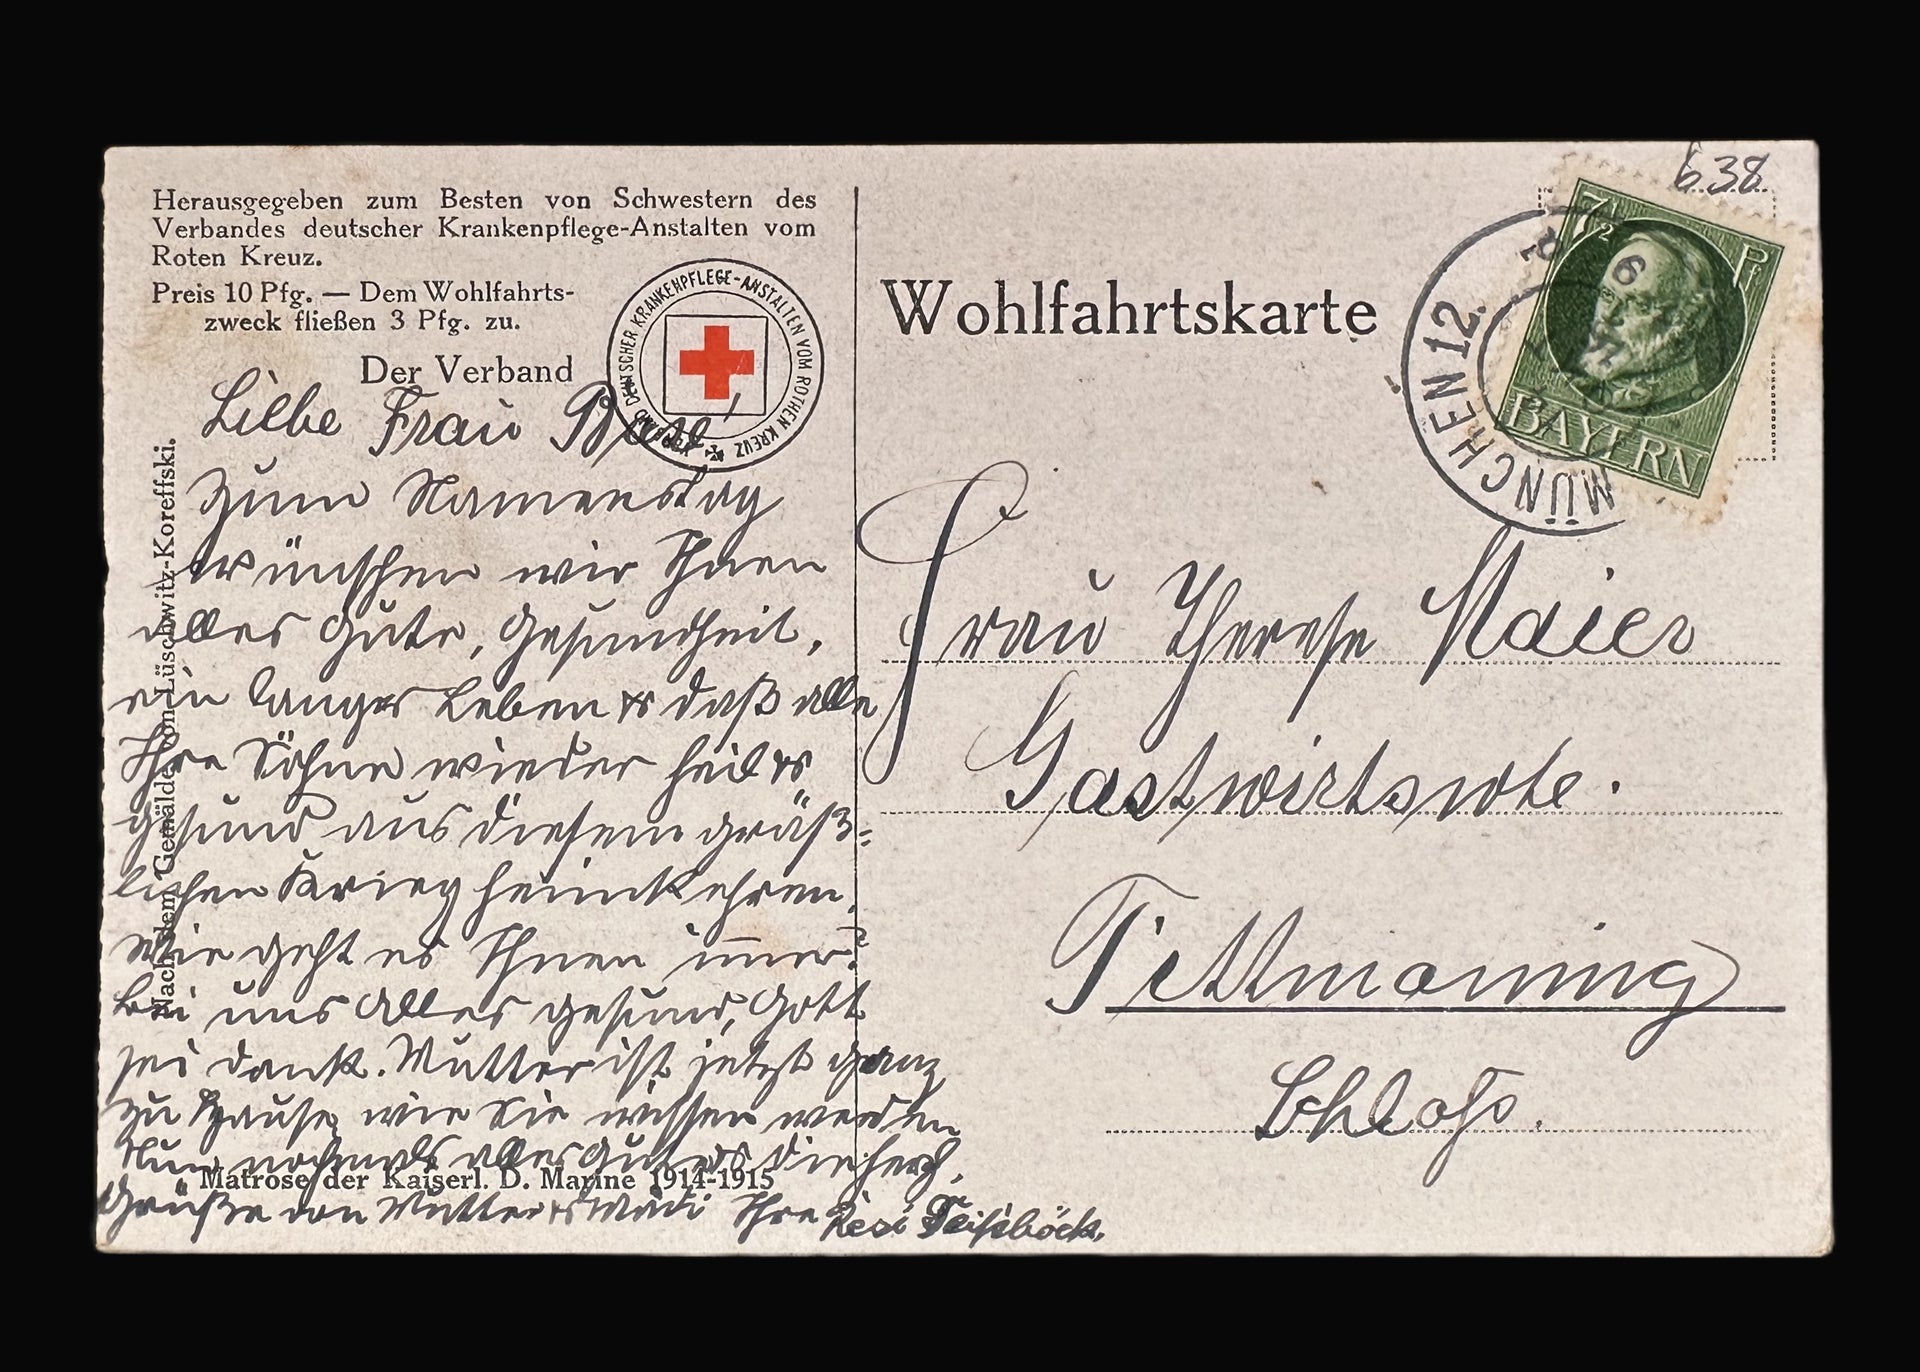 638
Herausgegeben zum Besten von Schwestern des
Verbandes deutscher Krankenpflege-Anstalten vom
Roten Kreuz.
Preis 10 Pfg. — Dem Wohlfahrts-
zweck fließen 3 Pfg. zu.
Der Verband
VERBAND DEUTSCHER KRANKENPFLEGE-ANSTALTEN VOM ROTHEN KREUZ
Wohlfahrtskarte
7½ Pf
BAYERN
MÜNCHEN 12.
Nach dem Gemälde von Lüschwitz-Koreffski.
Liebe Frau
Zum Namenstag
wünschen wir Ihnen
alles Gute, Gesundheit,
ein langes Leben & daß alle
Ihre Söhne wieder heil &
gesund aus diesem gräß=
lichen Krieg heimkehren.
Wie geht es Ihnen immer?
Bei uns alles gesund, Gott
sei dank. Mutter ist jetzt ganz
zu Hause, wie Sie wissen werden
Nun nochmals alles Gute & die herzl.
Grüße von Mutter & Ihre Resi
Matrose der Kaiserl. D. Marine 1914-1915
Frau Therese Maier
Gastwirtswte.
Tittmoning
Schloß.